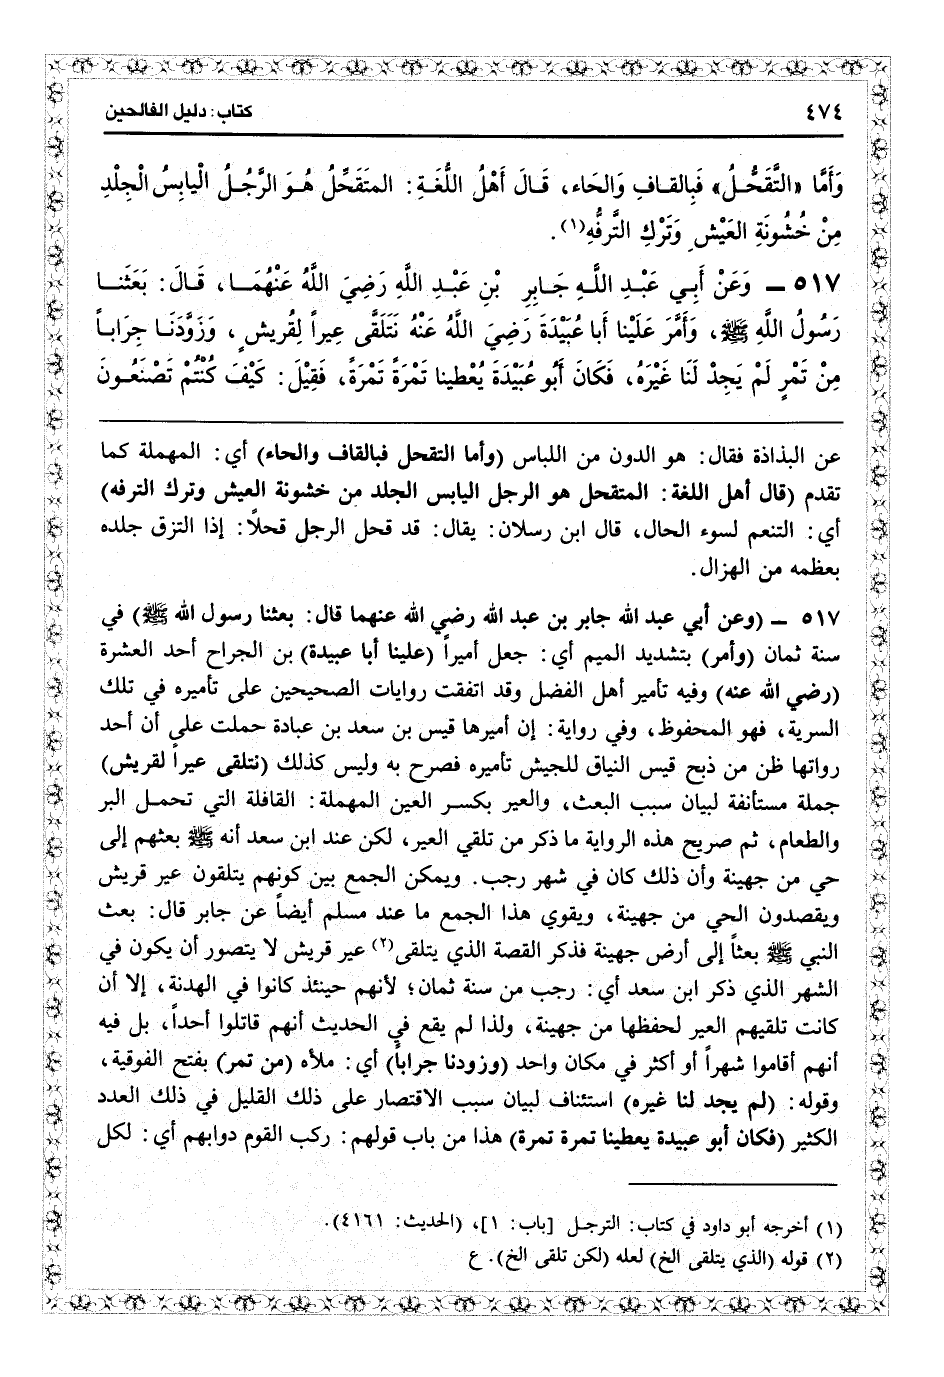 ٤٧٤ كتاب: دليل الفالحين
وَأَمَّا «التَّقَحُّلُ» فَبِالقـافِ وَالحَاء، قَـالَ أَهْلُ اللُّغَـةِ: المتَقَحِّلُ هُـوَ الرَّجُـلُ الْيابِسُ الْجِلْدِ
مِنْ خُشُونَةِ العَيْشِ وَتَرْكِ التَّرفُّهِ(١).
٥١٧ ـ وَعَنْ أَبِـي عَبْـدِ اللَّـهِ جَـابِرِ بْنِ عَبْـدِ اللَّهِ رَضِيَ اللَّهُ عَنْهُمَـا، قَـالَ: بَعَثَنـا
رَسُولُ اللَّهِ ﷺ، وَأَمَّرَ عَلَيْنا أَبا عُبَيْدَةَ رَضِيَ اللَّهُ عَنْهُ نَتَلَقَّى عِيراً لِقُريشٍ، وَزَوَّدَنَـا جِرَابـاً
مِنْ تَمْرٍ لَمْ يَجِدْ لَنَا غَيْرَهُ، فَكَانَ أَبُو عُبَيْدَةَ يُعْطِينا تَمْرَةً تَمْرَةً، فَقِيْلَ: كَيْفَ كُنْتُمْ تَصْنَعُـونَ
عن البذاذة فقال: هو الدون من اللباس (وأما التقحل فبالقاف والحاء) أي: المهملة كما
تقدم (قال أهل اللغة: المتقحل هو الرجل اليابس الجلد من خشونة العيش وترك الترفه)
أي: التنعم لسوء الحال، قال ابن رسلان: يقال: قد قحل الرجل قحلاً: إذا التزق جلده
بعظمه من الهزال.
٥١٧ ـ (وعن أبي عبد الله جابر بن عبد الله رضي الله عنهما قال: بعثنا رسول الله ﷺ) في
سنة ثمان (وأمر) بتشديد الميم أي: جعل أميراً (علينا أبا عبيدة) بن الجراح أحد العشرة
(رضي الله عنه) وفيه تأمير أهل الفضل وقد اتفقت روايات الصحيحين على تأميره في تلك
السرية، فهو المحفوظ، وفي رواية: إن أميرها قيس بن سعد بن عبادة حملت على أن أحد
رواتها ظن من ذبح قيس النياق للجيش تأميره فصرح به وليس كذلك (نتلقى عيراً لقريش)
جملة مستأنفة لبيان سبب البعث، والعير بكسر العين المهملة: القافلة التي تحمل البر
والطعام، ثم صريح هذه الرواية ما ذكر من تلقي العير، لكن عند ابن سعد أنه ﷺ بعثهم إلى
حي من جهينة وأن ذلك كان في شهر رجب. ويمكن الجمع بين كونهم يتلقون عير قريش
ويقصدون الحي من جهينة، ويقوي هذا الجمع ما عند مسلم أيضاً عن جابر قال: بعث
النبي ﷺ بعثاً إلى أرض جهينة فذكر القصة الذي يتلقى(٢) عير قريش لا يتصور أن يكون في
الشهر الذي ذكر ابن سعد أي: رجب من سنة ثمان؛ لأنهم حينئذ كانوا في الهدنة، إلا أن
كانت تلقيهم العير لحفظها من جهينة، ولذا لم يقع في الحديث أنهم قاتلوا أحداً، بل فيه
أنهم أقاموا شهراً أو أكثر في مكان واحد (وزودنا جراباً) أي: ملأه (من تمر) بفتح الفوقية،
وقوله: (لم يجد لنا غيره) استئناف لبيان سبب الاقتصار على ذلك القليل في ذلك العدد
الكثير (فكان أبو عبيدة يعطينا تمرة تمرة) هذا من باب قولهم: ركب القوم دوابهم أي: لكل
(١) أخرجه أبو داود في كتاب: الترجل [باب: ١]، (الحديث: ٤١٦١).
(٢) قوله (الذي يتلقى الخ) لعله (لكن تلقى الخ). ع